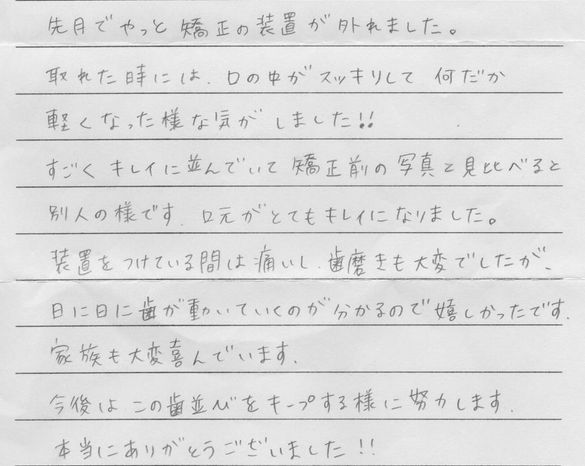 先月でやっと矯正の装置が外れました。
取れた時には、口の中がスッキリして何だか
軽くなった様な気がしました!!
すごくキレイに並んでいて矯正前の写真と見比べると
別人の様です。口元がとてもキレイになりました。
装置をつけている間は痛いし、歯磨きも大変でしたが、
日に日に歯が動いていくのが分かるので嬉しかったです。
家族も大変喜んでいます。
今後はこの歯並びをキープする様に努力します。
本当にありがとうございました!!